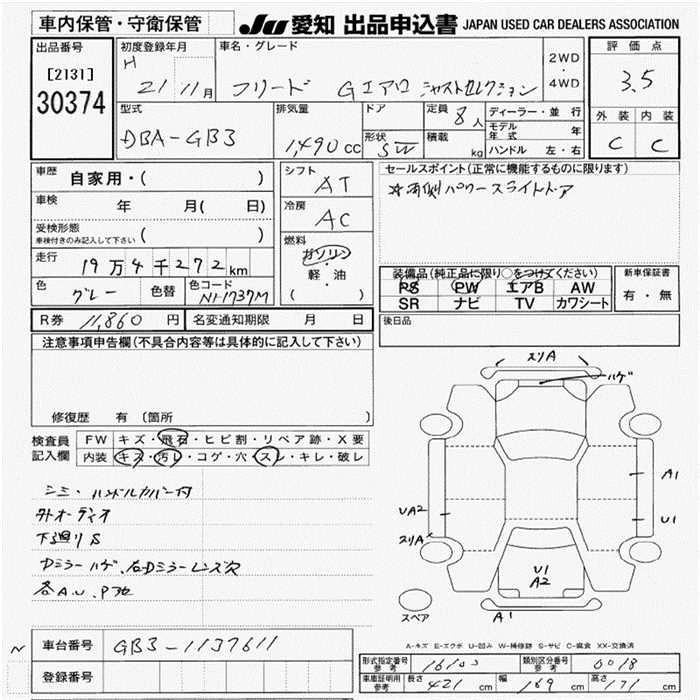 車内保管・守衛保管 JU 愛知 出品申込書 JAPAN USED CAR DEALERS ASSOCIATION
出品番号 初度登録年月 車名・グレード 2WD ・ 4WD 評価点
[2131] H 21 11月 フリード Gエアロ ジャストセレクション 3.5
30374
型式 排気量 ドア 定員 8人 ディーラー・並行 外装 内装
DBA-GB3 1,490cc 形状 SW 積載 kg モデル年式 年 C C
ハンドル 左・右
車歴 自家用・( ) シフト AT セールスポイント(正常に機能するものに限ります)
車検 年 月( 日) 冷房 AC ☆両側パワースライドドア
受検形態 車検付きのみ記入して下さい ( )
走行 19万4千272km 燃料 ガソリン・軽油 ( )
装備品(純正品に限り○をつけてください) 新車保証書
色 グレー 色替 色コード NH-737M PS PW エアB AW 有・無
SR ナビ TV カワシート
R券 11,860円 名変通知期限 月 日 後日品
注意事項申告欄(不具合内容等は具体的に記入して下さい)
修復歴 有 〔箇所
検査員記入欄 FW キズ・飛石・ヒビ割・リペア跡・X要
内装 キズ・汚レ・コゲ・穴・スレ・キレ・破レ
シミ・ハンドルカバー付
外オーディオ
下廻りS
Dミラーハゲ、右Dミラーレンズ欠
各A.U.P他
スリA
ハゲ
A1
UA2
U1
スリA
U1
A2
スペア
A1
A-キズ E-エクボ U-凹み W-補修跡 S-サビ C-腐食 XX-交換済
車台番号 GB3-1137611
登録番号
形式指定番号 参考 16100 類別区分番号 参考 0018
車庫証明用 参考 長さ 421 cm 幅 169 cm 高さ 171 cm